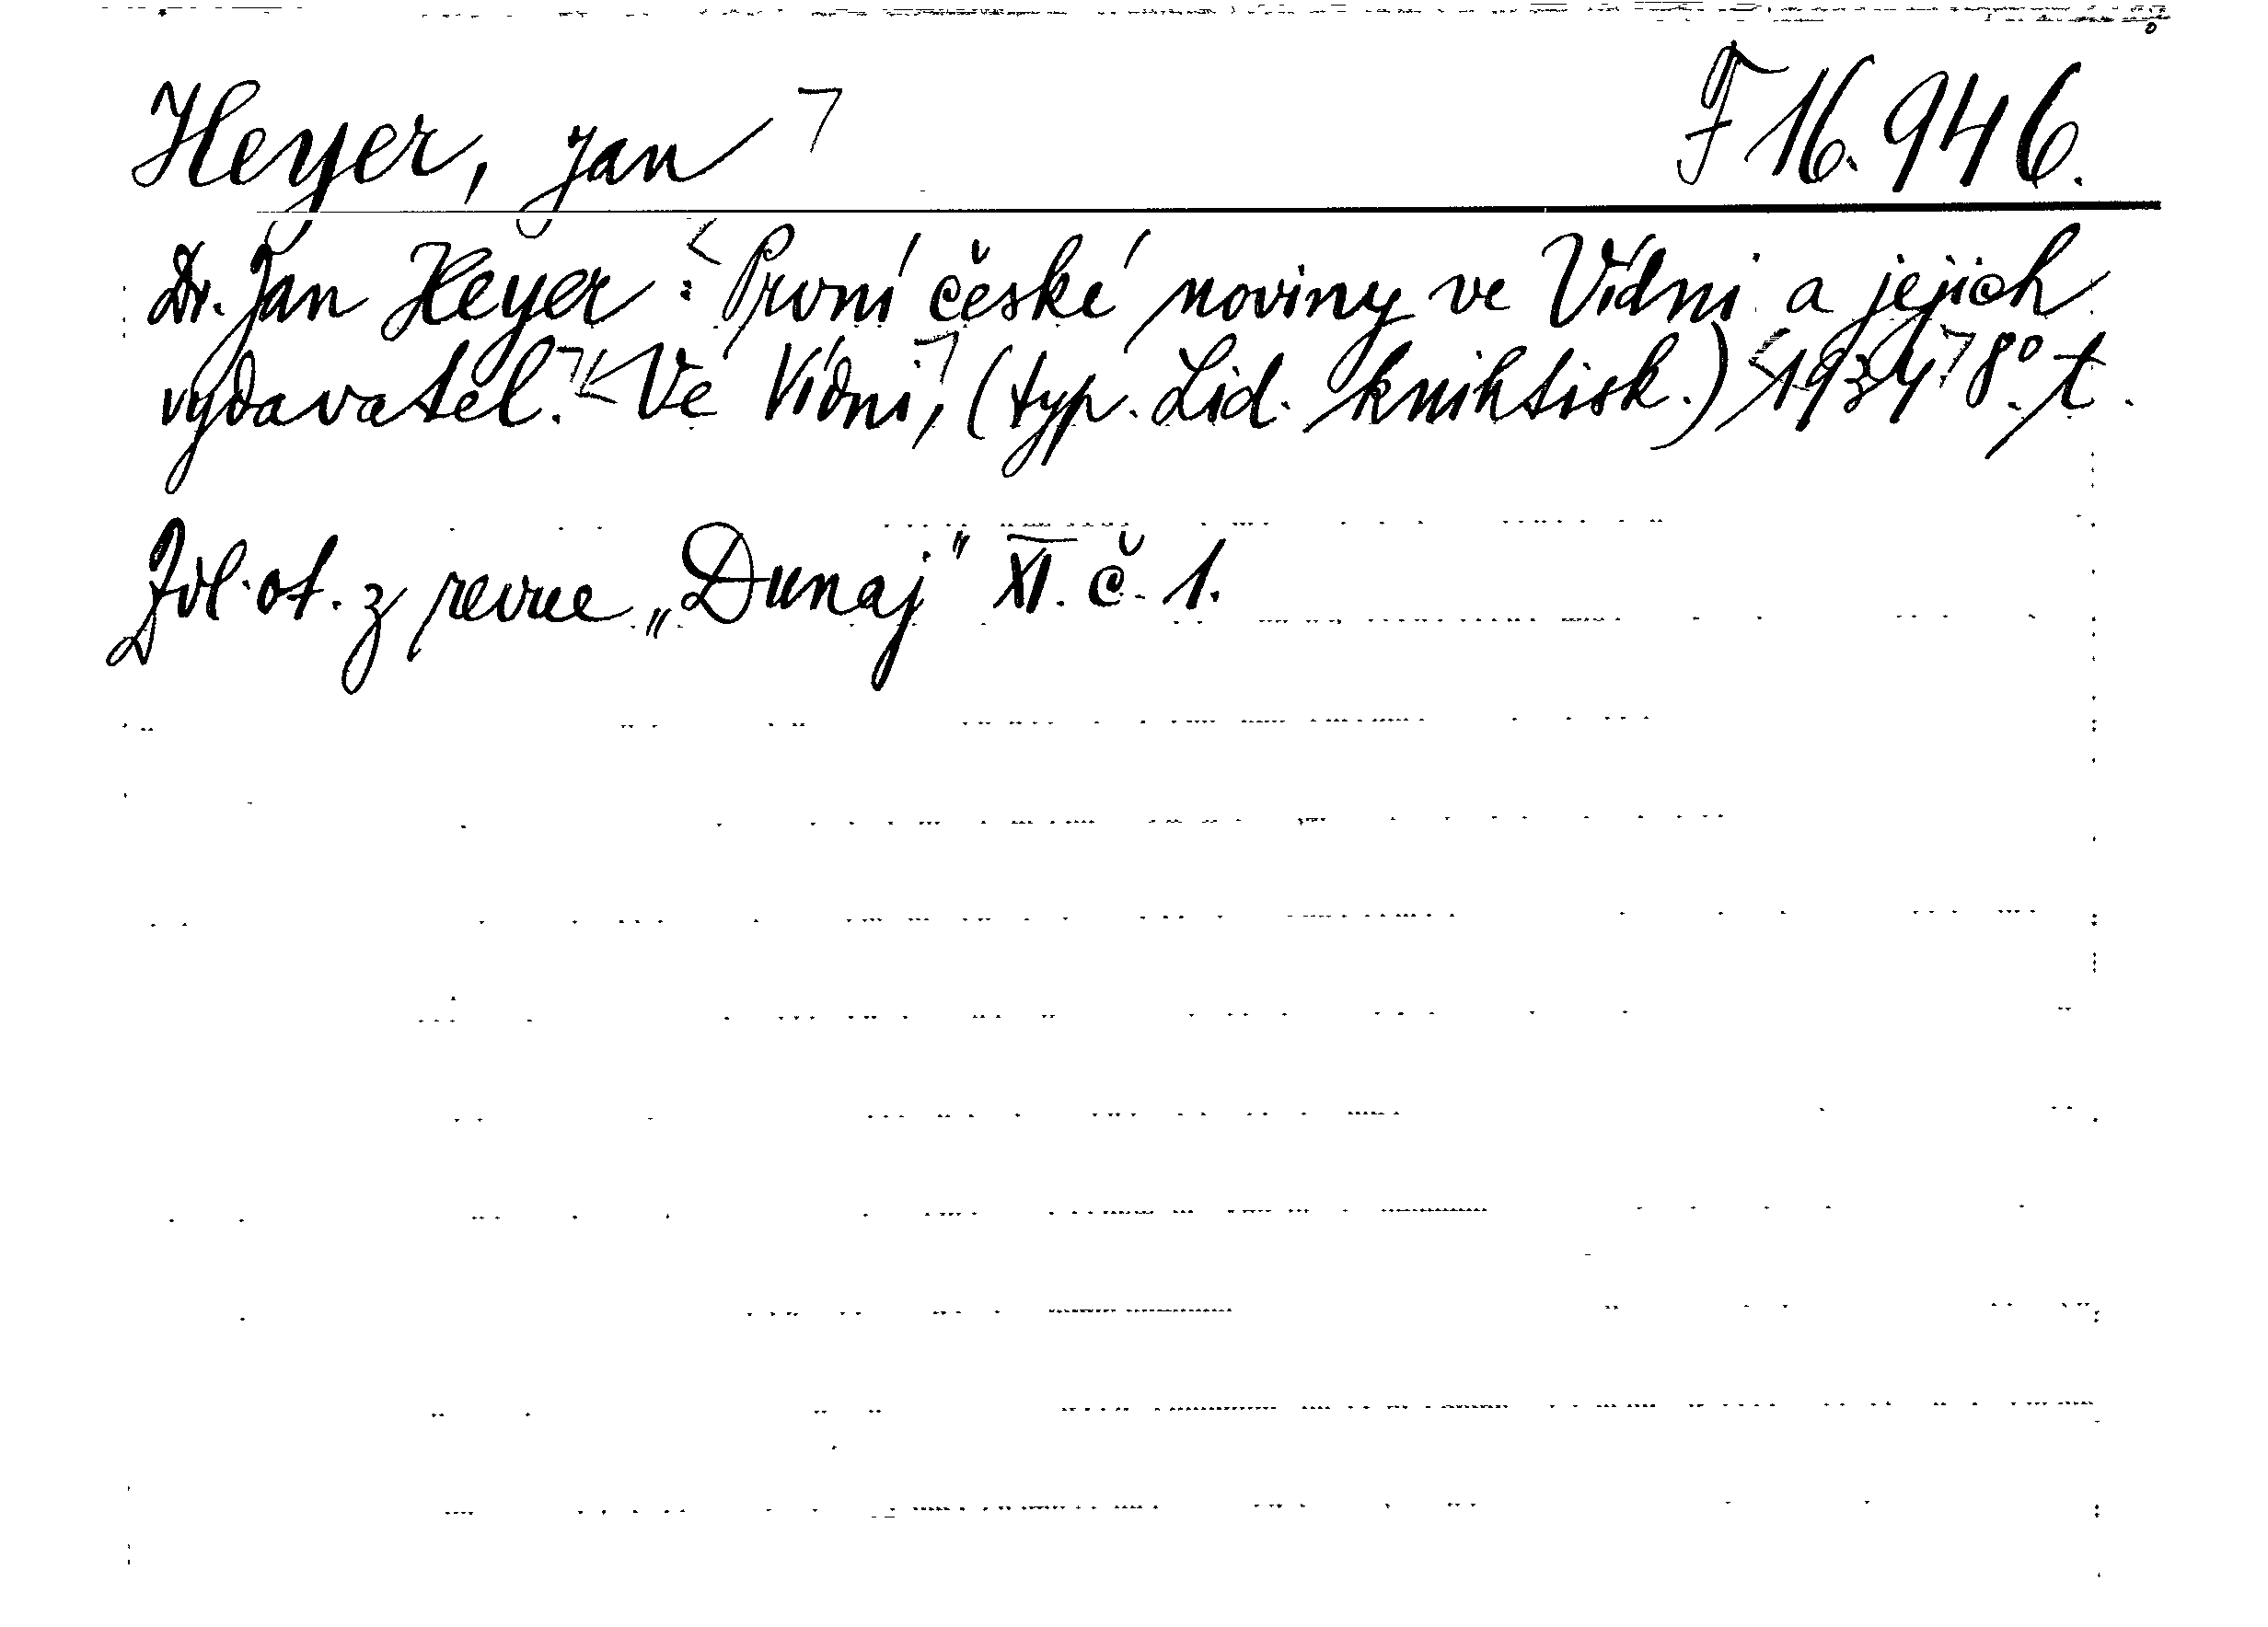 Heyer, Jan F 16.946.
Dr. Jan Heyer: První české noviny ve Vídni a jejich
vydavatel. Ve Vídni, (typ. Lid. knihtisk.) 1934. 8°. t.
Zvl. ot. z revue „Dunaj" XI. č. 1.